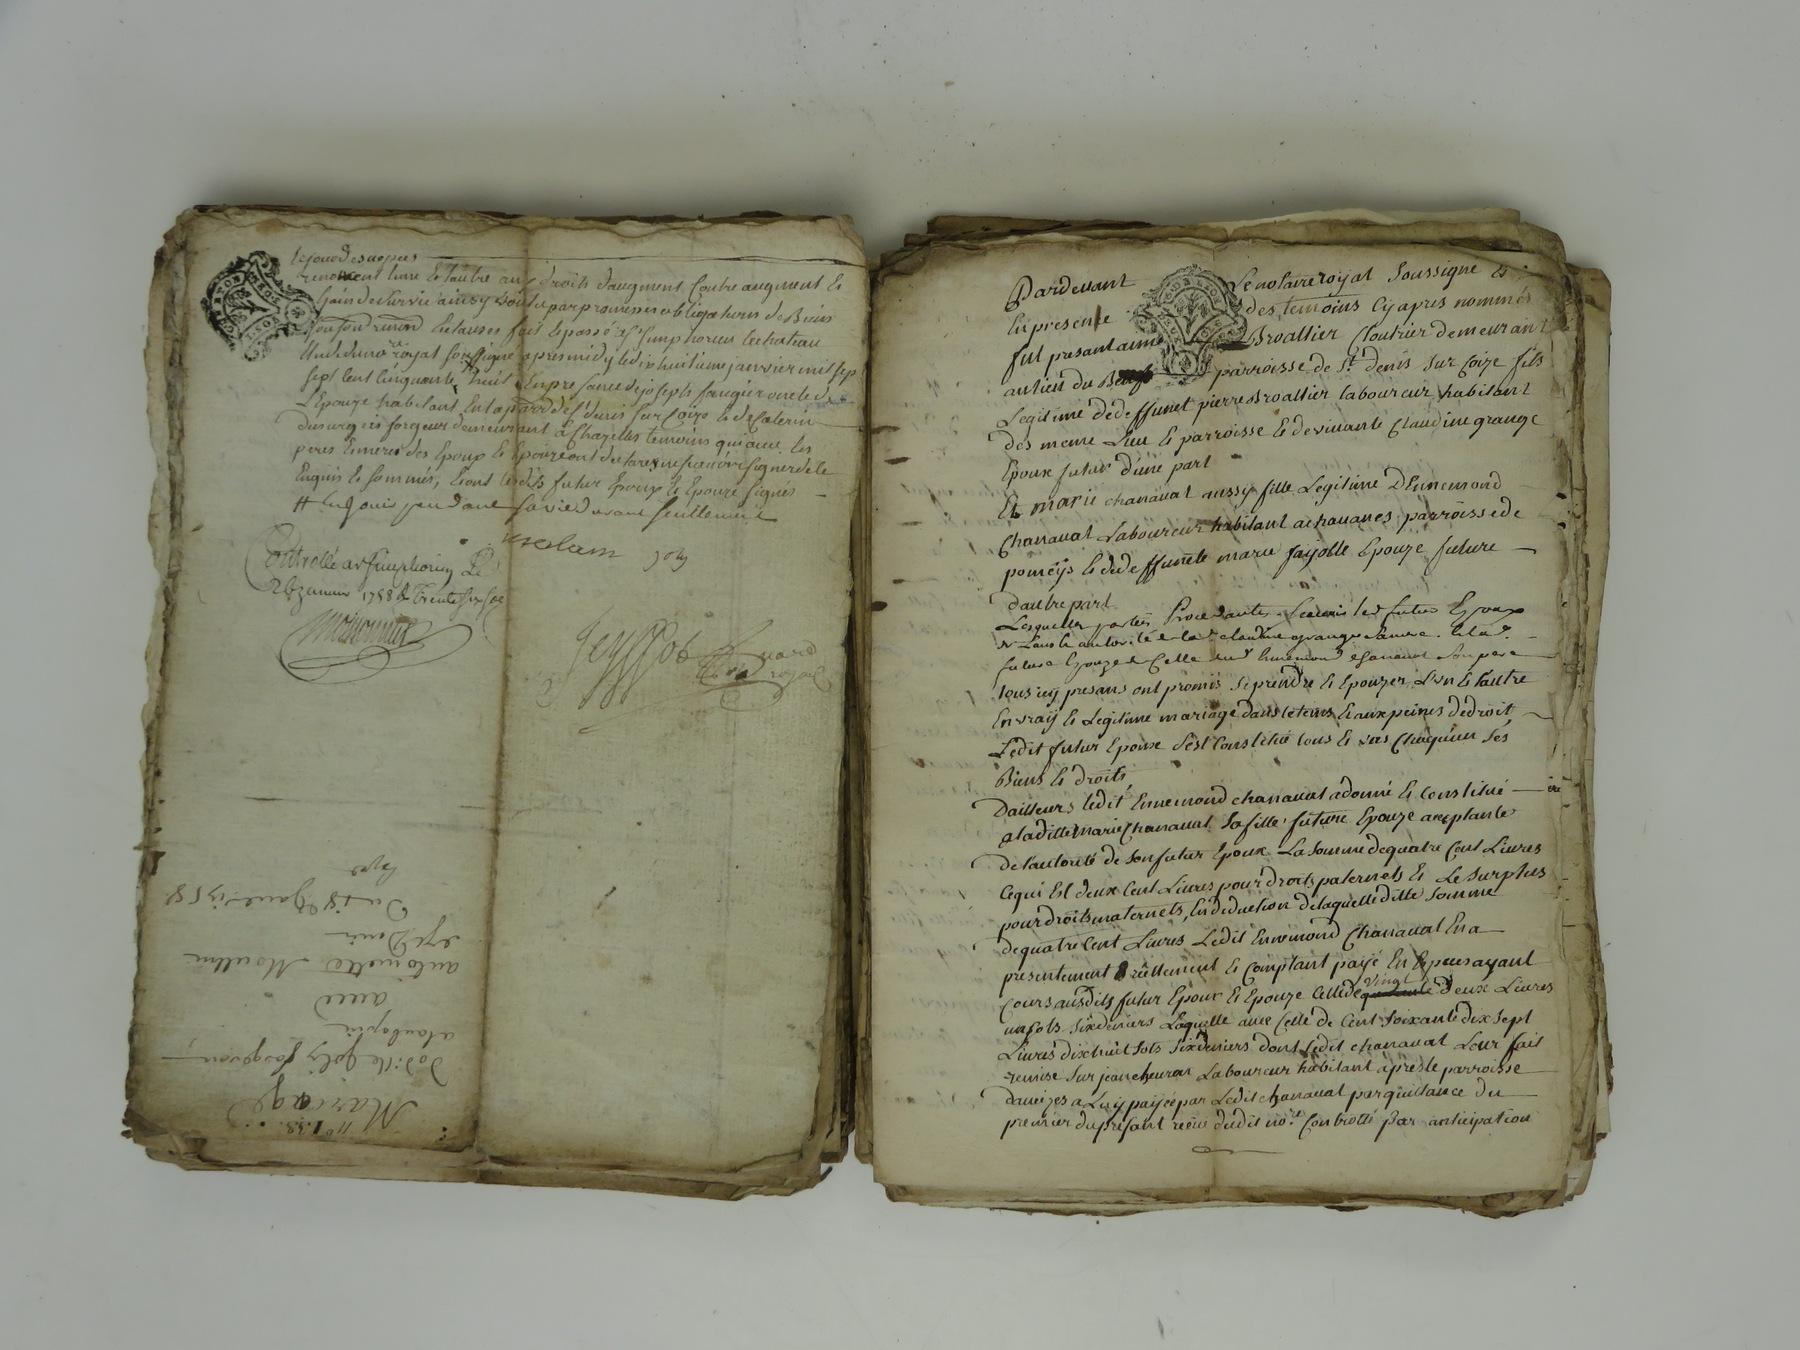 le jour des nopces
renoncent lune & lautre aux droits daugment Contre augment &
Gain de Survie ainsy par promesses obligations de Biens
fait & passé a St Simphorien le chateau
Etude du no.re royal soussigné apres midy le dix huitieme janvier mil sep
sept cent cinquante huit En presence de joseph faugier oncle de
L'Epouze habitant En la parr. de St denis sur Coize & de Caterin
forgeur demeurant a Chazelles temoins qui avec les
peres & meres des Epoux & Epouze ont declaré ne sçavoir signer de ce
Enquis & sommés, & ont lesdits futur Epoux & Epouze signés
# En jouir pendant sa vie durant seullement
Controllé a St Simphorien Le
janvier 1758 & Trente six sols
royal
n° 138.
Mariage
De sr Joly forgeron
avec
antoinette Moullin
St Denis
Du 18e Janv. 1758
Par devant Le notaire royal Soussigné &
En presence des temoins Cy apres nommés
fut present Broallier Cloutrier demeurant
au lieu du parroisse de St. denis Sur Coize fils
Legitime de deffunct pierre Broallier laboureur habitant
des meme Lieu & parroisse & de vivante Claudine grange
Epoux futur d'une part
Et marie chanavat aussy fille Legitime D'Ennemond
Chanavat Laboureur habitant a chavanes parroisse de
pomeys & de deffuncte marie fayolle Epouze future
dautre part
Lesquelles parties Procedantes Scavoir led. futur Epoux
de Lautorité de lad. claudine grange Sa mere & lad.
future Epouze de Celle dud. Ennemond chanavat Son pere
tous icy presans ont promis se prendre & Epouzer L'un & lautre
En vraÿ & Legitime mariage dans le tems & aux peines de droit
Ledit futur Epoux s'est Constitué tous & uns Chaqu'un ses
Biens & droits
Dailleurs ledit Ennemond chanavat a donné & constitué
a laditte Marie Chanavat Sa fille future Epouze acceptante
de lautorité de son futur Epoux La somme de quatre Cent Livres
Ce qui Est deux Cent Livres pour droits paternels & Le Surplus
pour droits maternels, En deduction de laquelle ditte somme
de quatre Cent Livres Ledit Ennemond Chanavat En a
presentement & réellement & comptant payé En Especes ayant
Cours ausdits futur Epoux & Epouze Celle de vingt deux Livres
un sols six deniers Laquelle avec Celle de Cent soixante dix sept
Livres dix huit sols six deniers dont Ledit chanavat Leur fait
remise sur jean cheuron Laboureur habitant a parroisse
daveizes a Luy payée par Ledit chanavat par quittance du
premier du presant recüe dudit no.re Controllé Par anticipation